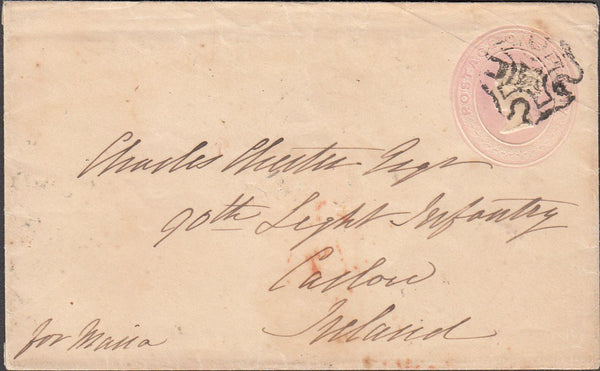 POSTAGE
Charles Chester Esqr
90th Light Infantry
Carlow
Ireland
for Maria